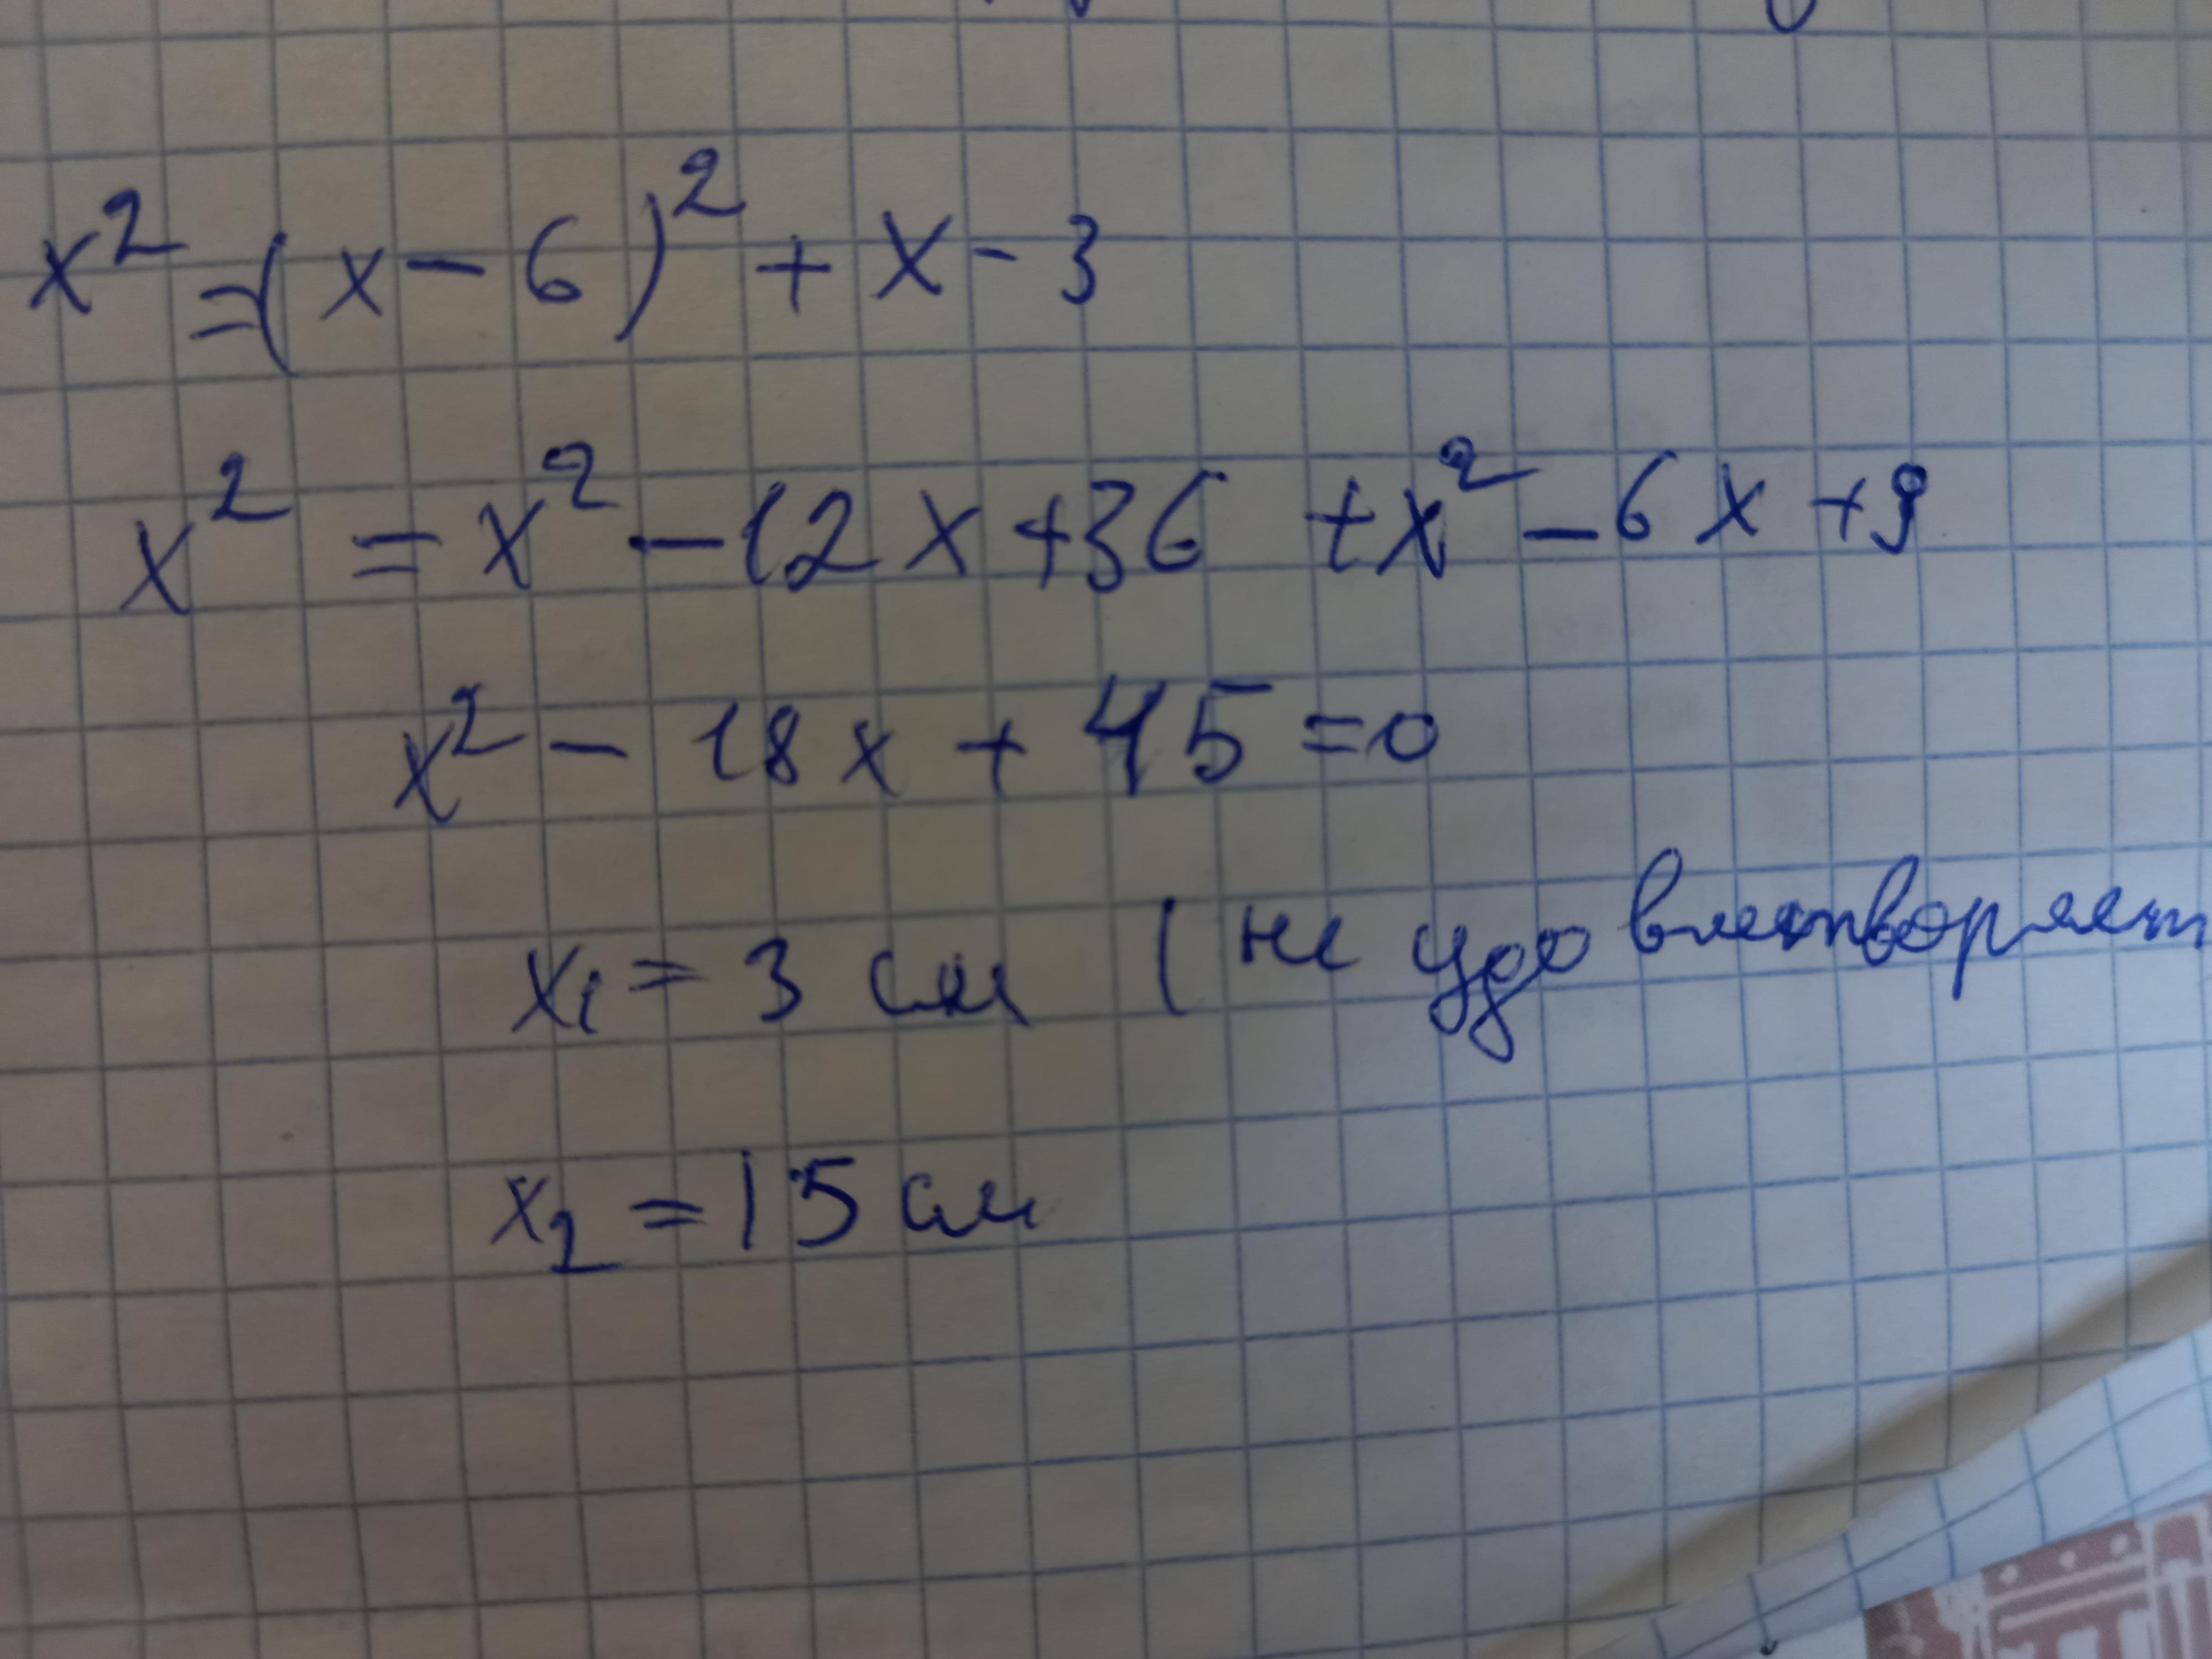 x² = (x - 6)² + x - 3
x² = x² - 12x + 36 + x² - 6x + 9
x² - 18x + 45 = 0
x₁ = 3 см ( не удовлетворяет
x₂ = 15 см